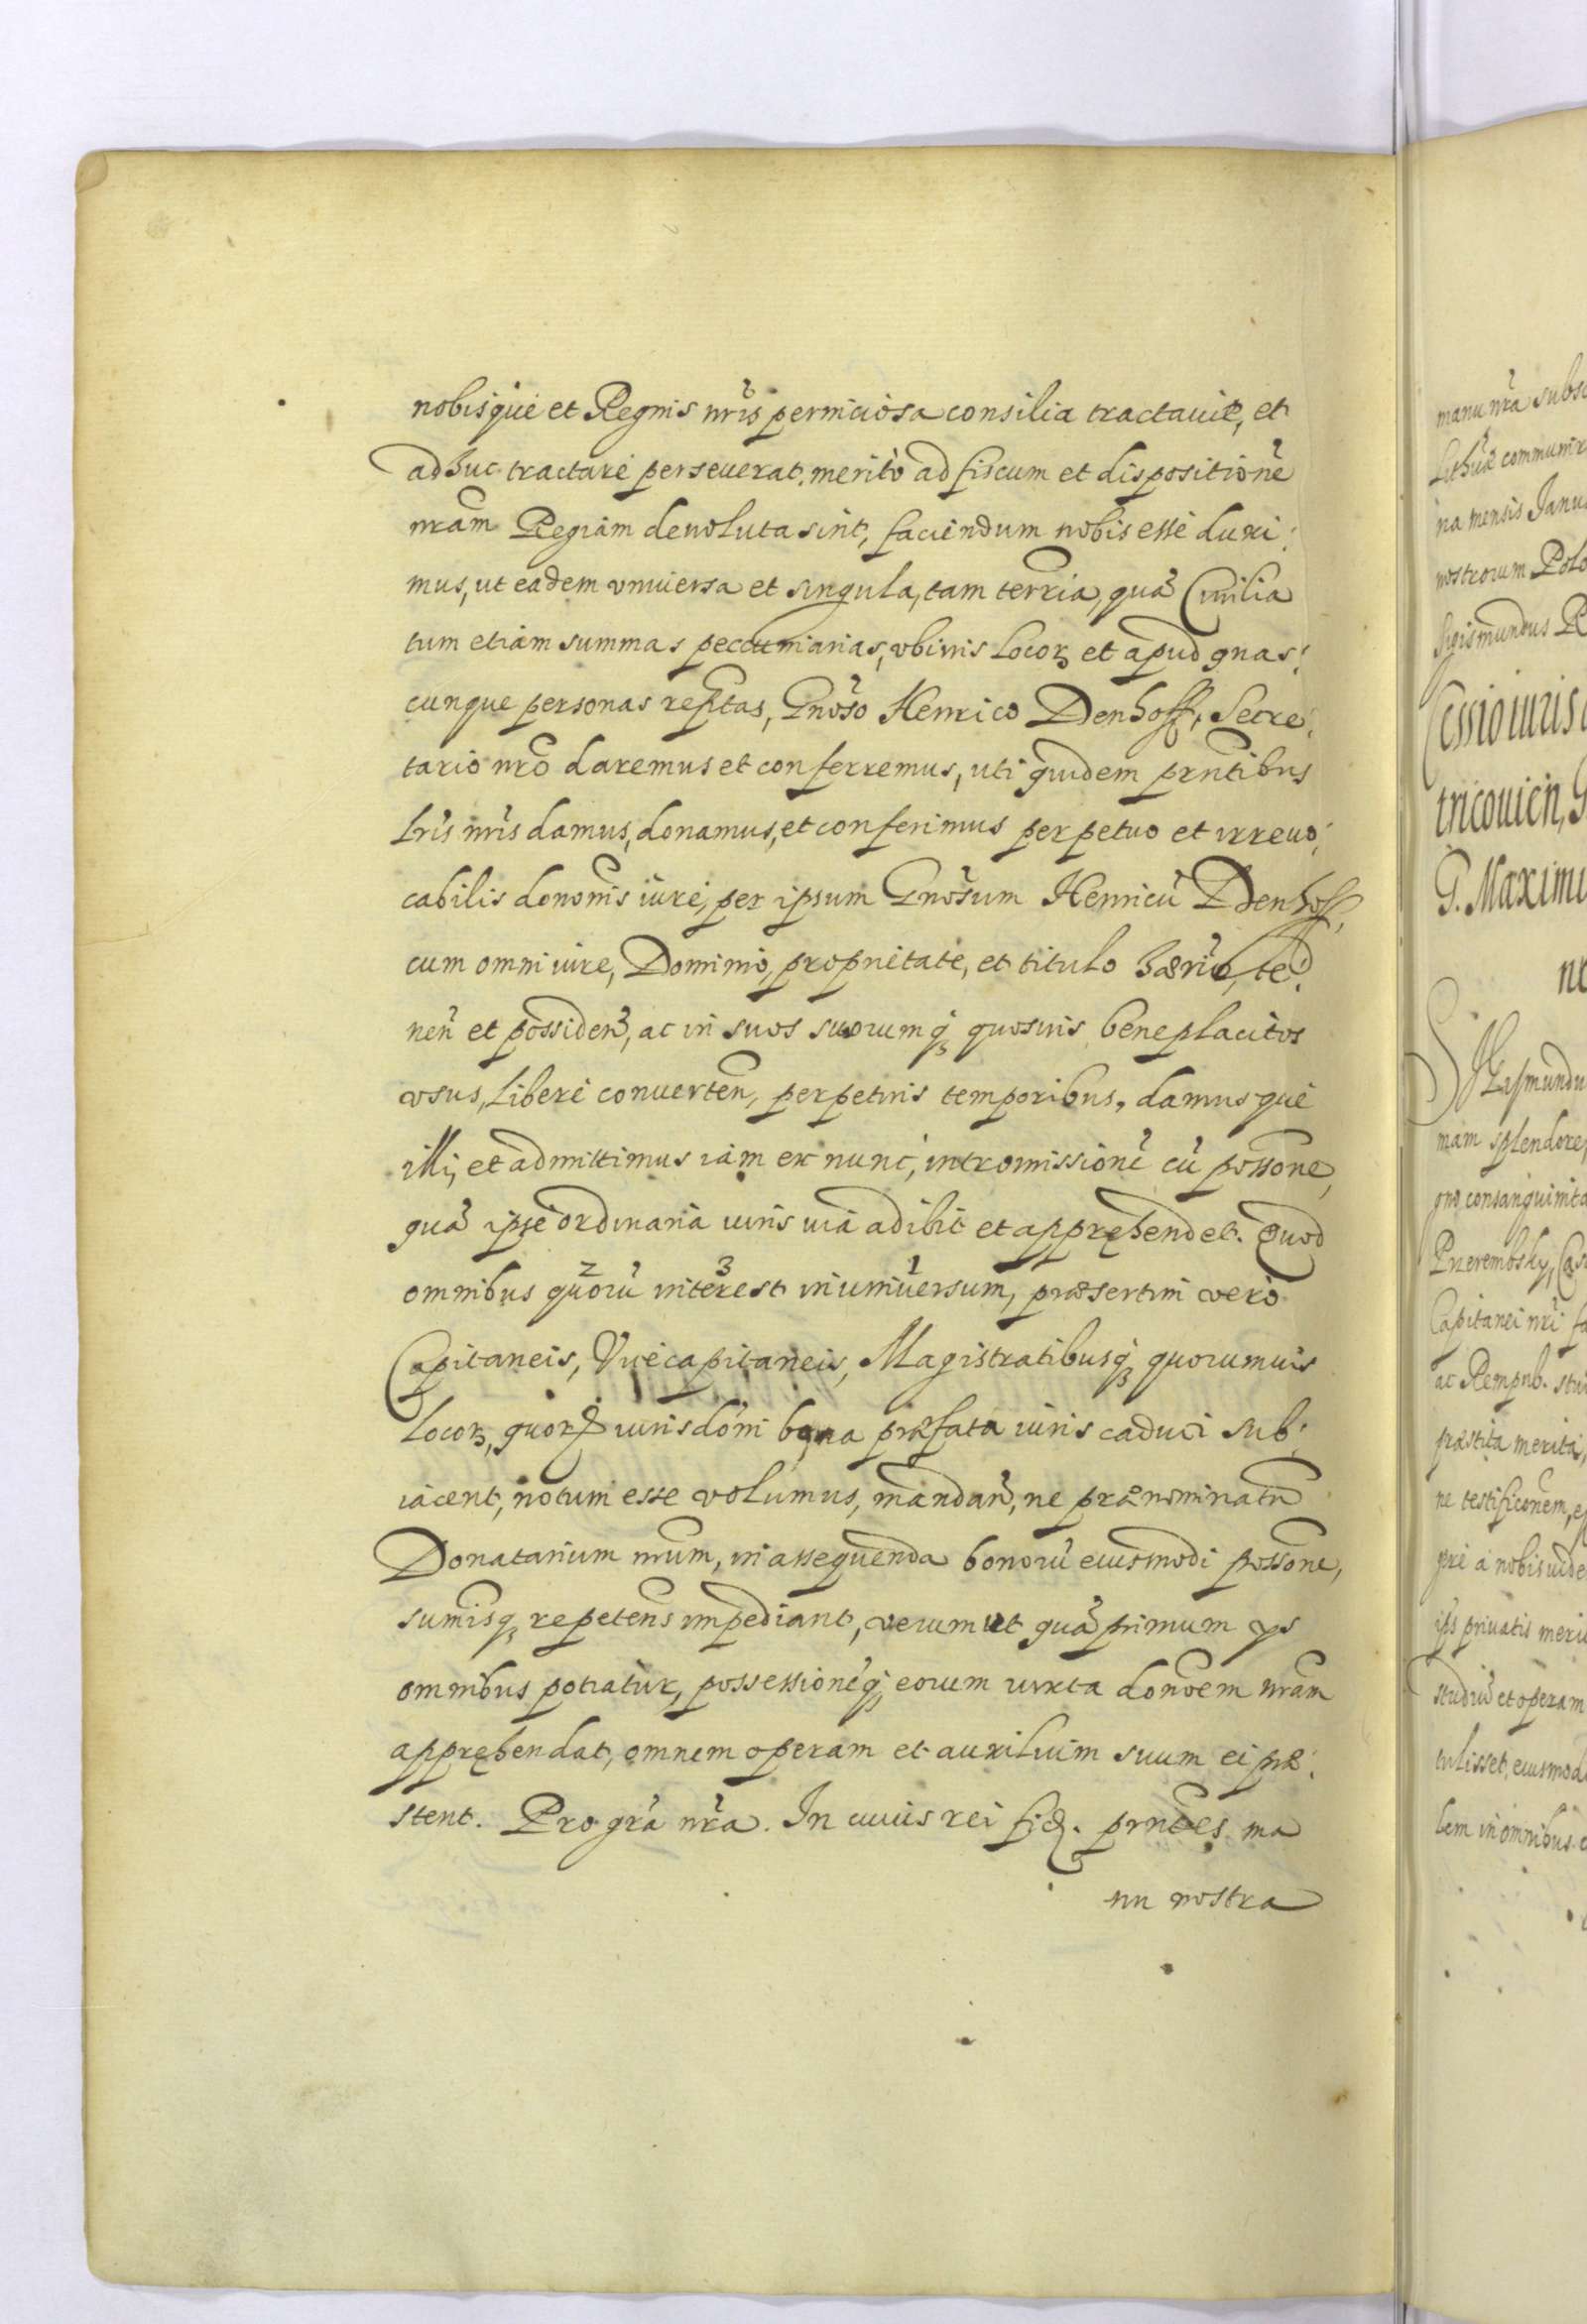 nobisque et Regnis nr̃is perniciosa consilia tractauit, et
adhuc tractare perseuerat, merito ad fiscum et dispositionẽ
nrãm Regiam deuoluta sint, faciendum nobis esse duxi:
mus, ut eadem vniuersa et singula, tam terr̃ia, quã Ciuilia
tum etiam summas peccuniarias, vbiuis locoꝝ et apud quas:
cunque personas rep̃tas, Gnõso Henrico Denhoff, Secre:
tario nrõ daremus et conferremus, uti quidem prñtibus
Lrĩs nrĩs damus, donamus, et conferimus perpetuo et irreuo:
cabilis donõnis iure, per ipsum Gnõsum Henricũ Denhoff,
cum omni iure, Dominio, proprietate, et titulo hæriõ, te:
neñ et possideñ, ac in suos suorumq́ꝫ quosuis beneplacitos
vsus, libere conuerteñ, perpetuis temporibus, damusque
illi, et admittimus iam ex nunc, intromissionẽ cũ possõne,
quã ipse ordinaria iuris uia adibit et apprehendet. Quod
omnibus 2 quorũ 3 interest 1 in uniuersum, præsertim vero
Capitaneis, Vicecapitaneis, Magistratibusq́ꝫ quorumuis
locoꝝ, quorꝫ iurisdõni bona præfata iuris caduci sub:
iacent, notum esse volumus, mandañ, ne prænominatũ
Donatarium nrũm, in assequenda bonorũ eiusmodi possõne,
sum̃isqꝫ repetens̃ impediant, verum ut quã primum ys
omnibus potiatur, possessionẽq́ꝫ eorum iuxta donõem nrãm
apprehendat, omnem operam et auxilium suum ei præ:
stent. Pro grã nrã. In cuius rei fidꝫ. prñtes ma
nu nostra
manu nr̃a subsc
na mensis Janu
nostrorum Polo
Sigismundus
Cessio iuris
tricouicn̄, G
G. Maximi
mam splendore,
Przerembsky, Cas
Capitanei nrĩ fa
ac Rempub. stu
præstita merita,
ne testificõnem, e
gre a nobis uide
studiũ et operam
tulisset, eiusmodi
lem in omnibus